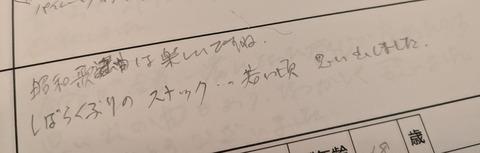 昭和歌謡曲は楽しいですね。
しばらくぶりのスナック…若い頃 思い出しました。
年齢 歳